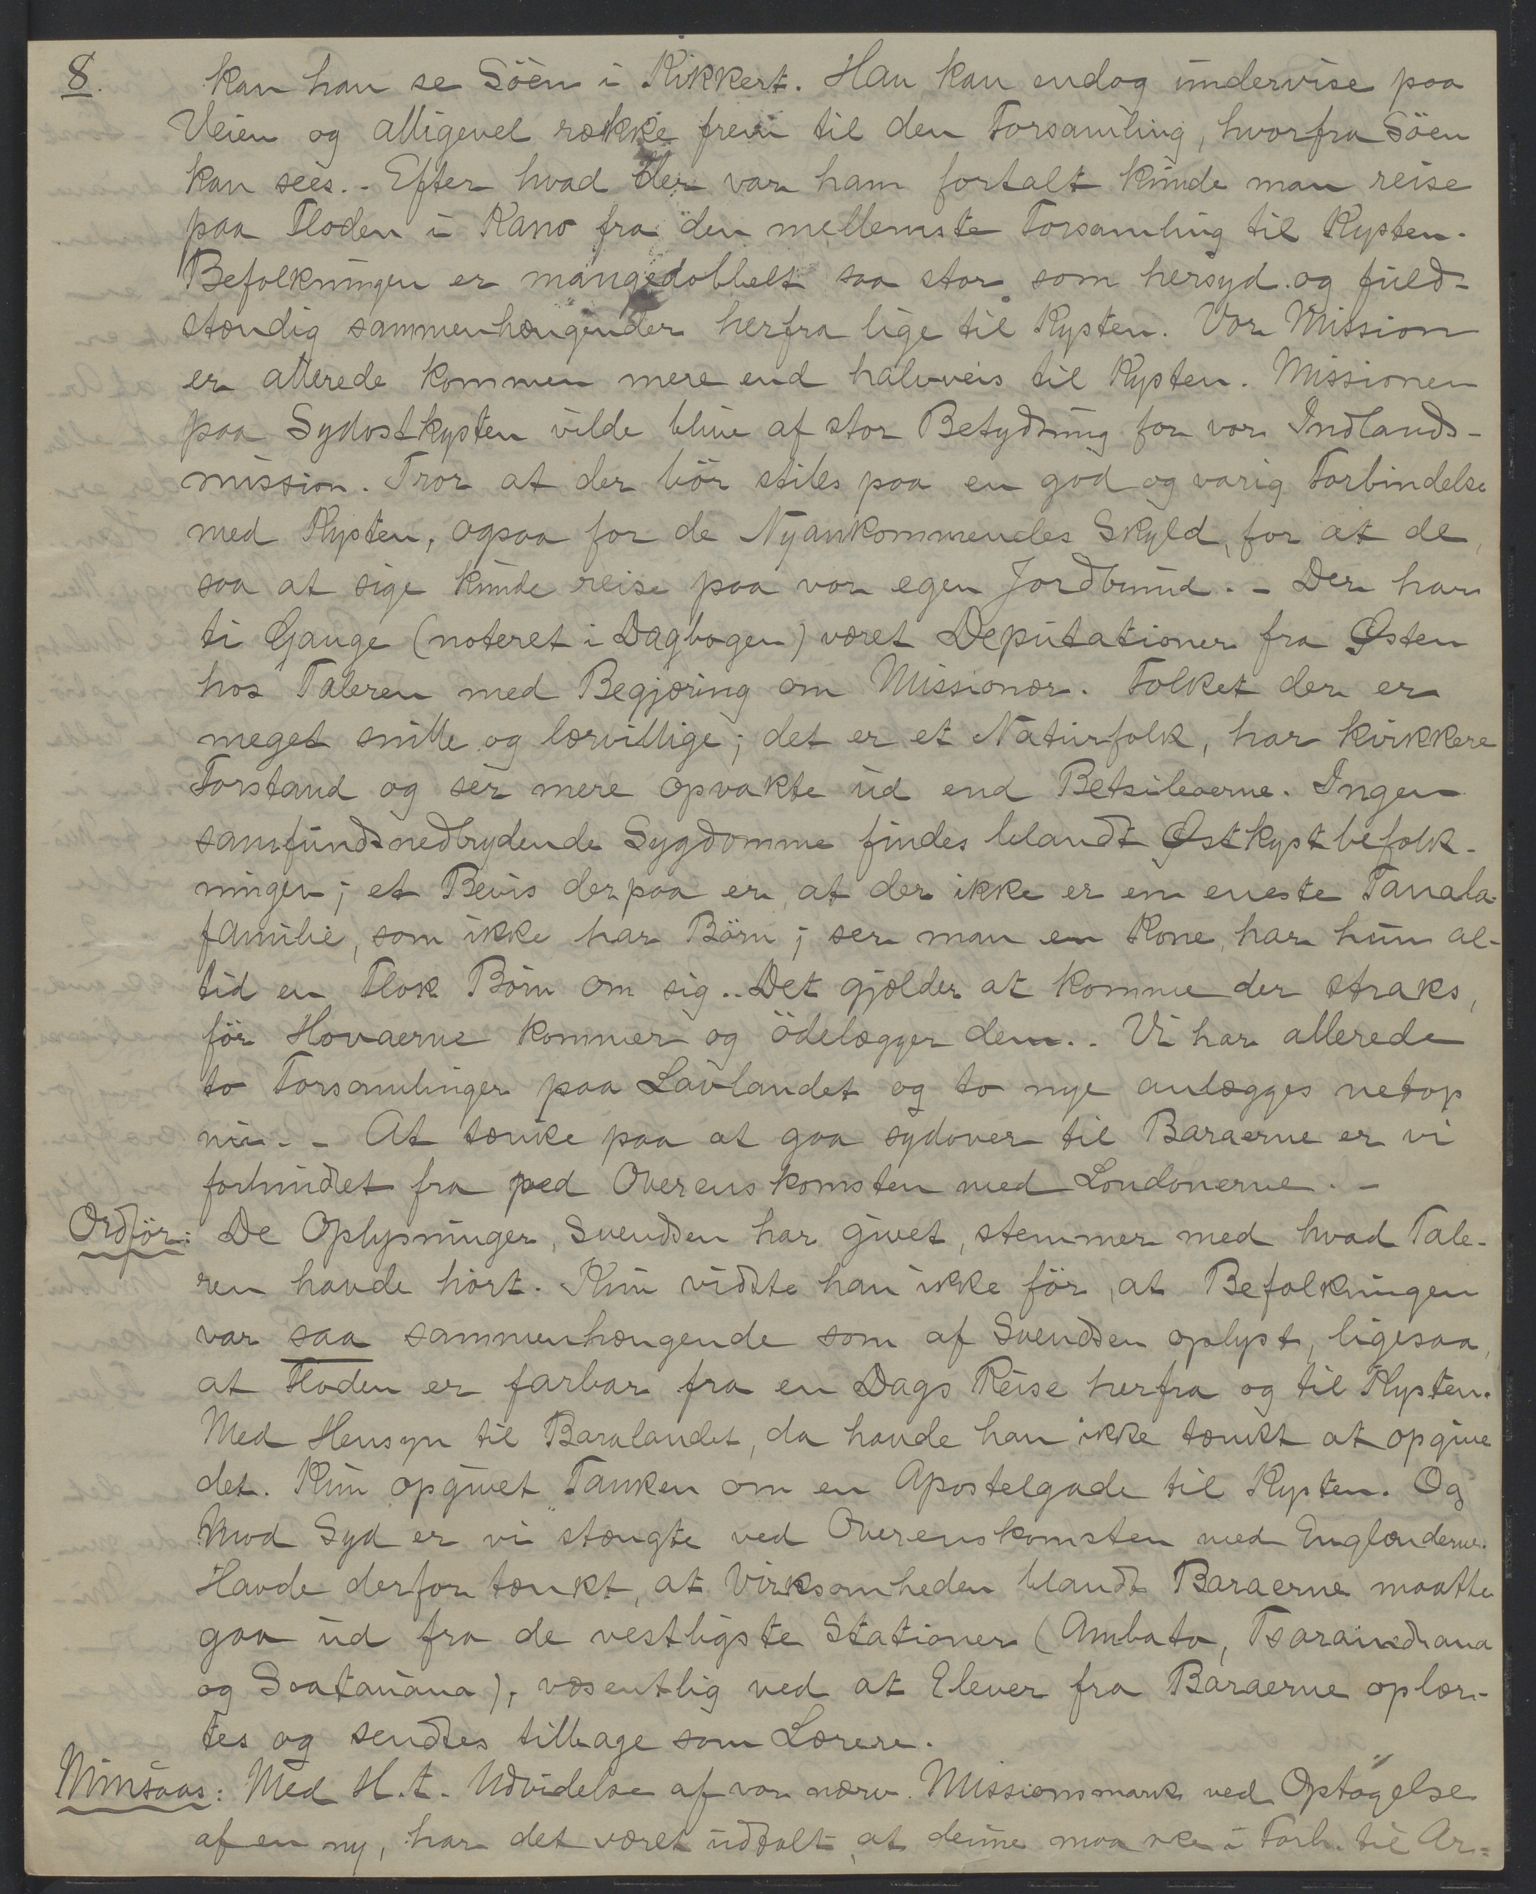 8. kan han se Söen i Kikkert. Han kan endog undervise paa
Veien og alligevel række frem til den Forsamling, hvorfra Söen
kan sees. - Efter hvad der var ham fortalt kunde man reise
paa Floden i Kano fra den mellemste Forsamling til Kysten.
Befolkningen er mangedobbelt saa stor som hersyd. og fuld-
stændig sammenhængender herfra lige til Kysten. Vor Mission
er allerede kommen mere end halvveis til Kysten. Missionen
paa Sydostkysten vilde blive af stor Betydning for vor Indlands-
mission. Tror at der bör stiles paa en god og varig Forbindelse
med Kysten, ogsaa for de Nyankommendes Skyld, for at de,
saa at sige kunde reise paa vor egen Jordbund. - Der har
ti Gange (noteret i Dagbogen) været Deputationer fra Østen
hos Taleren med Begjæring om Missionær. Folket der er
meget snille og lærvillige; det er et Naturfolk, har kvikkere
Forstand og ser mere opvakte ud end Betsileoerne. Ingen
samfundsnedbrydende Sygdomme findes blandt Østkystbefolk-
ningen; et Bevis derpaa er at der ikke er en eneste Tanala-
familie, som ikke har Börn; ser man en Kone, har hun al-
tid en Flok Börn om sig. . Det gjælder at komme der straks,
för Hovaerne kommer og ödelægger dem. . Vi har allerede
to Forsamlinger paa Lavlandet og to nye anlægges netop
nu. - At tænke paa at gaa sydover til Baraerne er vi
forhindret fra ved Overenskomsten med Londonerne. -
Ordför: De Oplysninger, Svendsen har givet, stemmer med hvad Tale-
ren havde hört. Kun vidste han ikke för, at Befolkningen
var saa sammenhængende som af Svendsen oplyst, ligesaa,
at Floden er farbar fra en Dags Reise herfra og til Kysten.
Med Hensyn til Baralandet, da havde han ikke tænkt at opgive
det. Kun opgivet Tanken om en Apostelgade til Kysten. Og
mod Syd er vi stængte ved Overenskomsten med Englænderne.
Havde derfor tænkt, at Virksomheden blandt Baraerne maatte
gaa ud fra de vestligste Stationer (Ambato, Tsaraindrana
og Soatanana), væsentlig ved at Elever fra Baraerne oplær-
tes og sendtes tilbage som Lærere.
Nimsaas: Med H.t. Udvidelse af vor nærv. Missionsmark ved Optagelse
af en ny, har det været udtalt, at denne maa ske i Forh. til Ar=